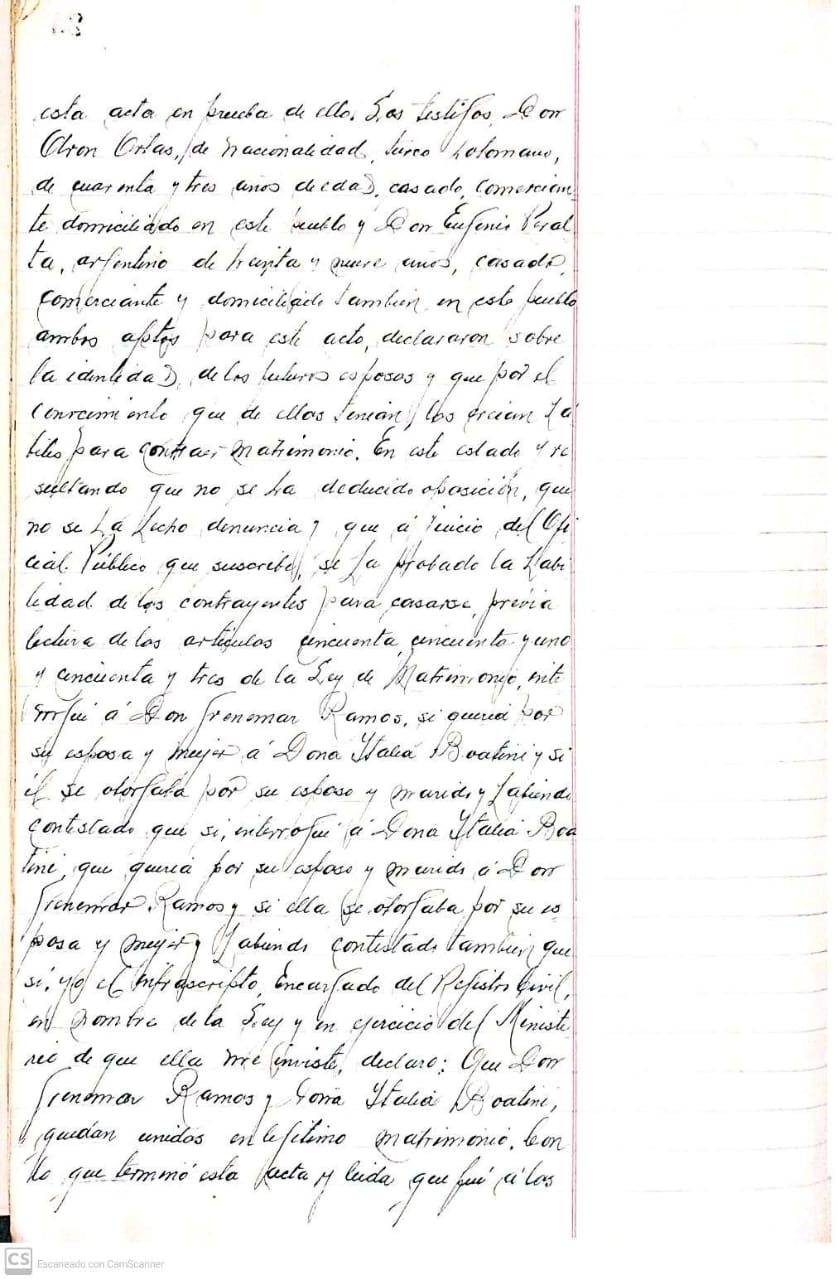 esta acta en prueba de ello. Los testigos, Don
Orlas, de nacionalidad, turco otomano,
de cuarenta y tres años de edad, casado, comercian
te domiciliado en este pueblo y Don Eugenio Peral
ta, argentino de treinta y nueve años, casado,
comerciante y domiciliado tambien en este pueblo
ambos aptos para este acto, declararon sobre
la identidad, de los futuros esposos y que por el
conocimiento que de ellos tenian, los creian há
biles para contraer matrimonio. En este estado y re
sultando que no se ha deducido oposición, que
no se há hecho denuncia y que á juicio del Ofi
cial Público que suscribe, se ha probado la habi
lidad de los contrayentes para casarse, previa
lectura de los artículos cincuenta, cincuenta y uno
y cincuenta y tres de la Ley de Matrimonio, inte
rrogué á Don Ramos, si queria por
su esposa y mujer á Dona Italia Boatini y si
él se otorgaba por su esposo y marido y habiendo
contestado que si, interrogué á Dona Italia Boa
tini, que queria por su esposo y marido á Don
Ramos y si ella se otorgaba por su es
posa y mujer y habiendo contestado tambien que
si, yo el infrascripto, Encargado del Registro Civil,
en nombre de la Ley y en ejercicio del Ministe
rio de que ella me inviste, declaro: Que Don
Ramos y Dona Italia Boatini,
quedan unidos en lejítimo matrimonio. Con
lo que terminó esta acta y leida que fué á los
CS Escaneado con CamScanner